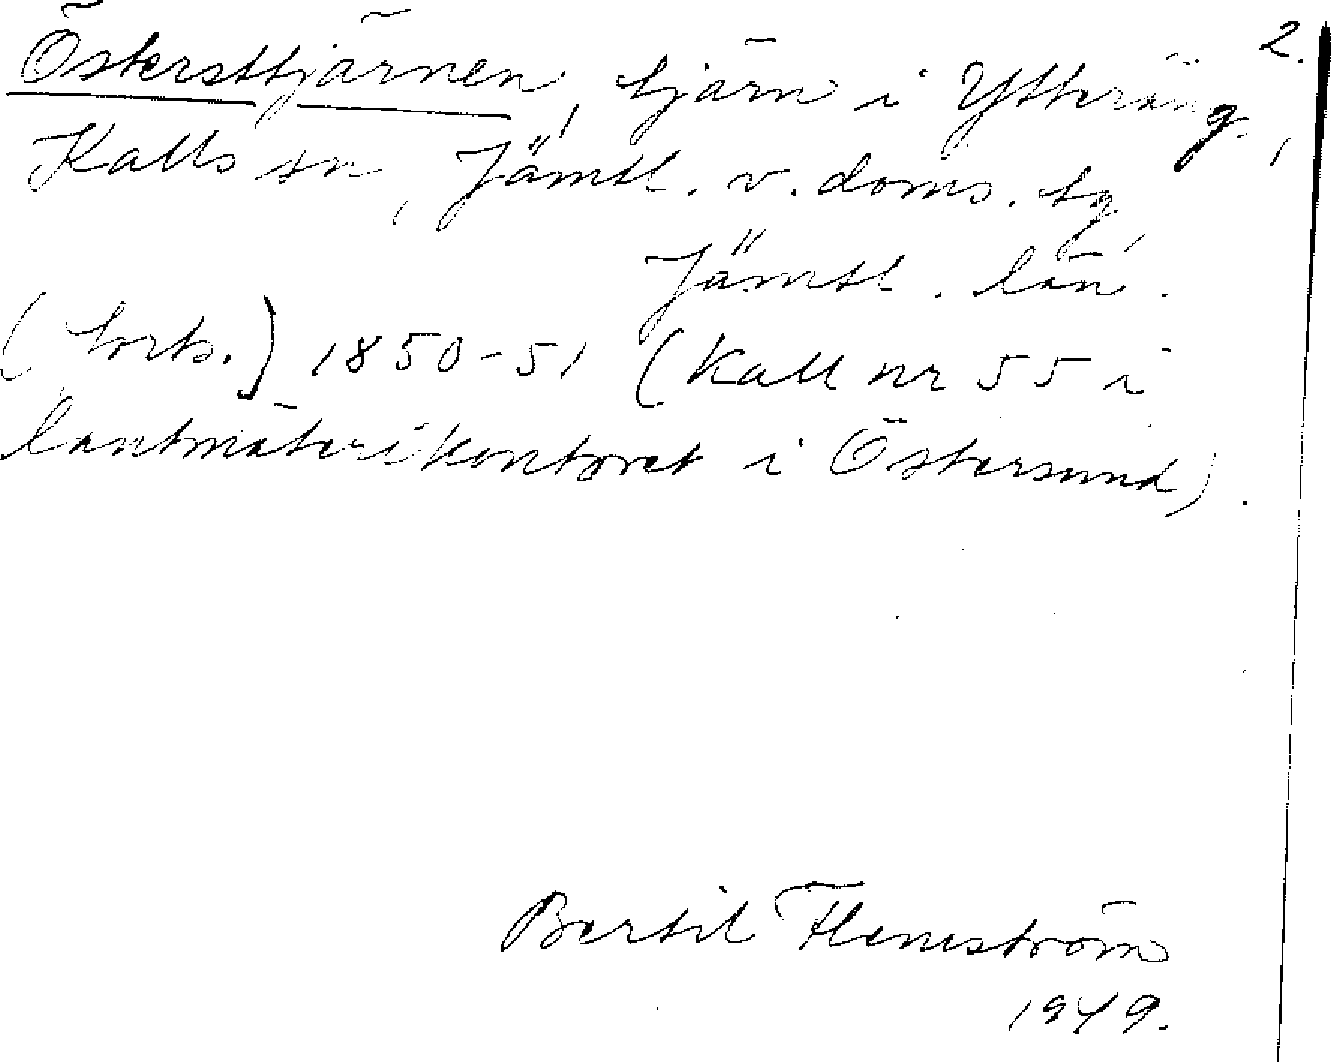 2.
Östersttjärnen, tjärn i Ytteräng,
Kalls sn, Jämtl. v. doms. tg,
Jämtl. län.
(Forts.) 1850-51 (Kall nr 55 i
lantmäterikontoret i Östersund).
Bertil Flemström
1949.